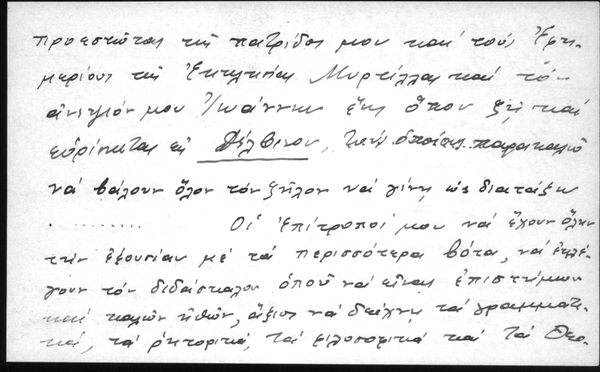 προεστῶτας τῆς πατρίδος μου καί τούς Ἐφη-
μερίους τῆς Ἐκκλησίας Μυρτίλλας καί τόν
ἀνεψιόν μου Ἰωάννην ἕως ὅπου ζῇ καί
εὑρίσκεται εἰς Δέλβινον, τούς ὁποίους παρακαλῶ
νά βάλουν ὅλον τόν ζῆλον νά γίνῃ ὡς διατάξω
. ........ Οἱ Ἐπίτροποί μου νά ἔχουν ὅλην
τήν ἐξουσίαν μέ τά περισσότερα βότα, νά ἐκλέ-
γουν τόν διδάσκαλον ὁποῦ νά εἶναι ἐπιστήμων
καί καλῶν ἠθῶν, ἄξιος νά δείχνῃ τά γραμματι-
κά, τά ῥητορικά, τά φιλοσοφικά καί τά Θεο-